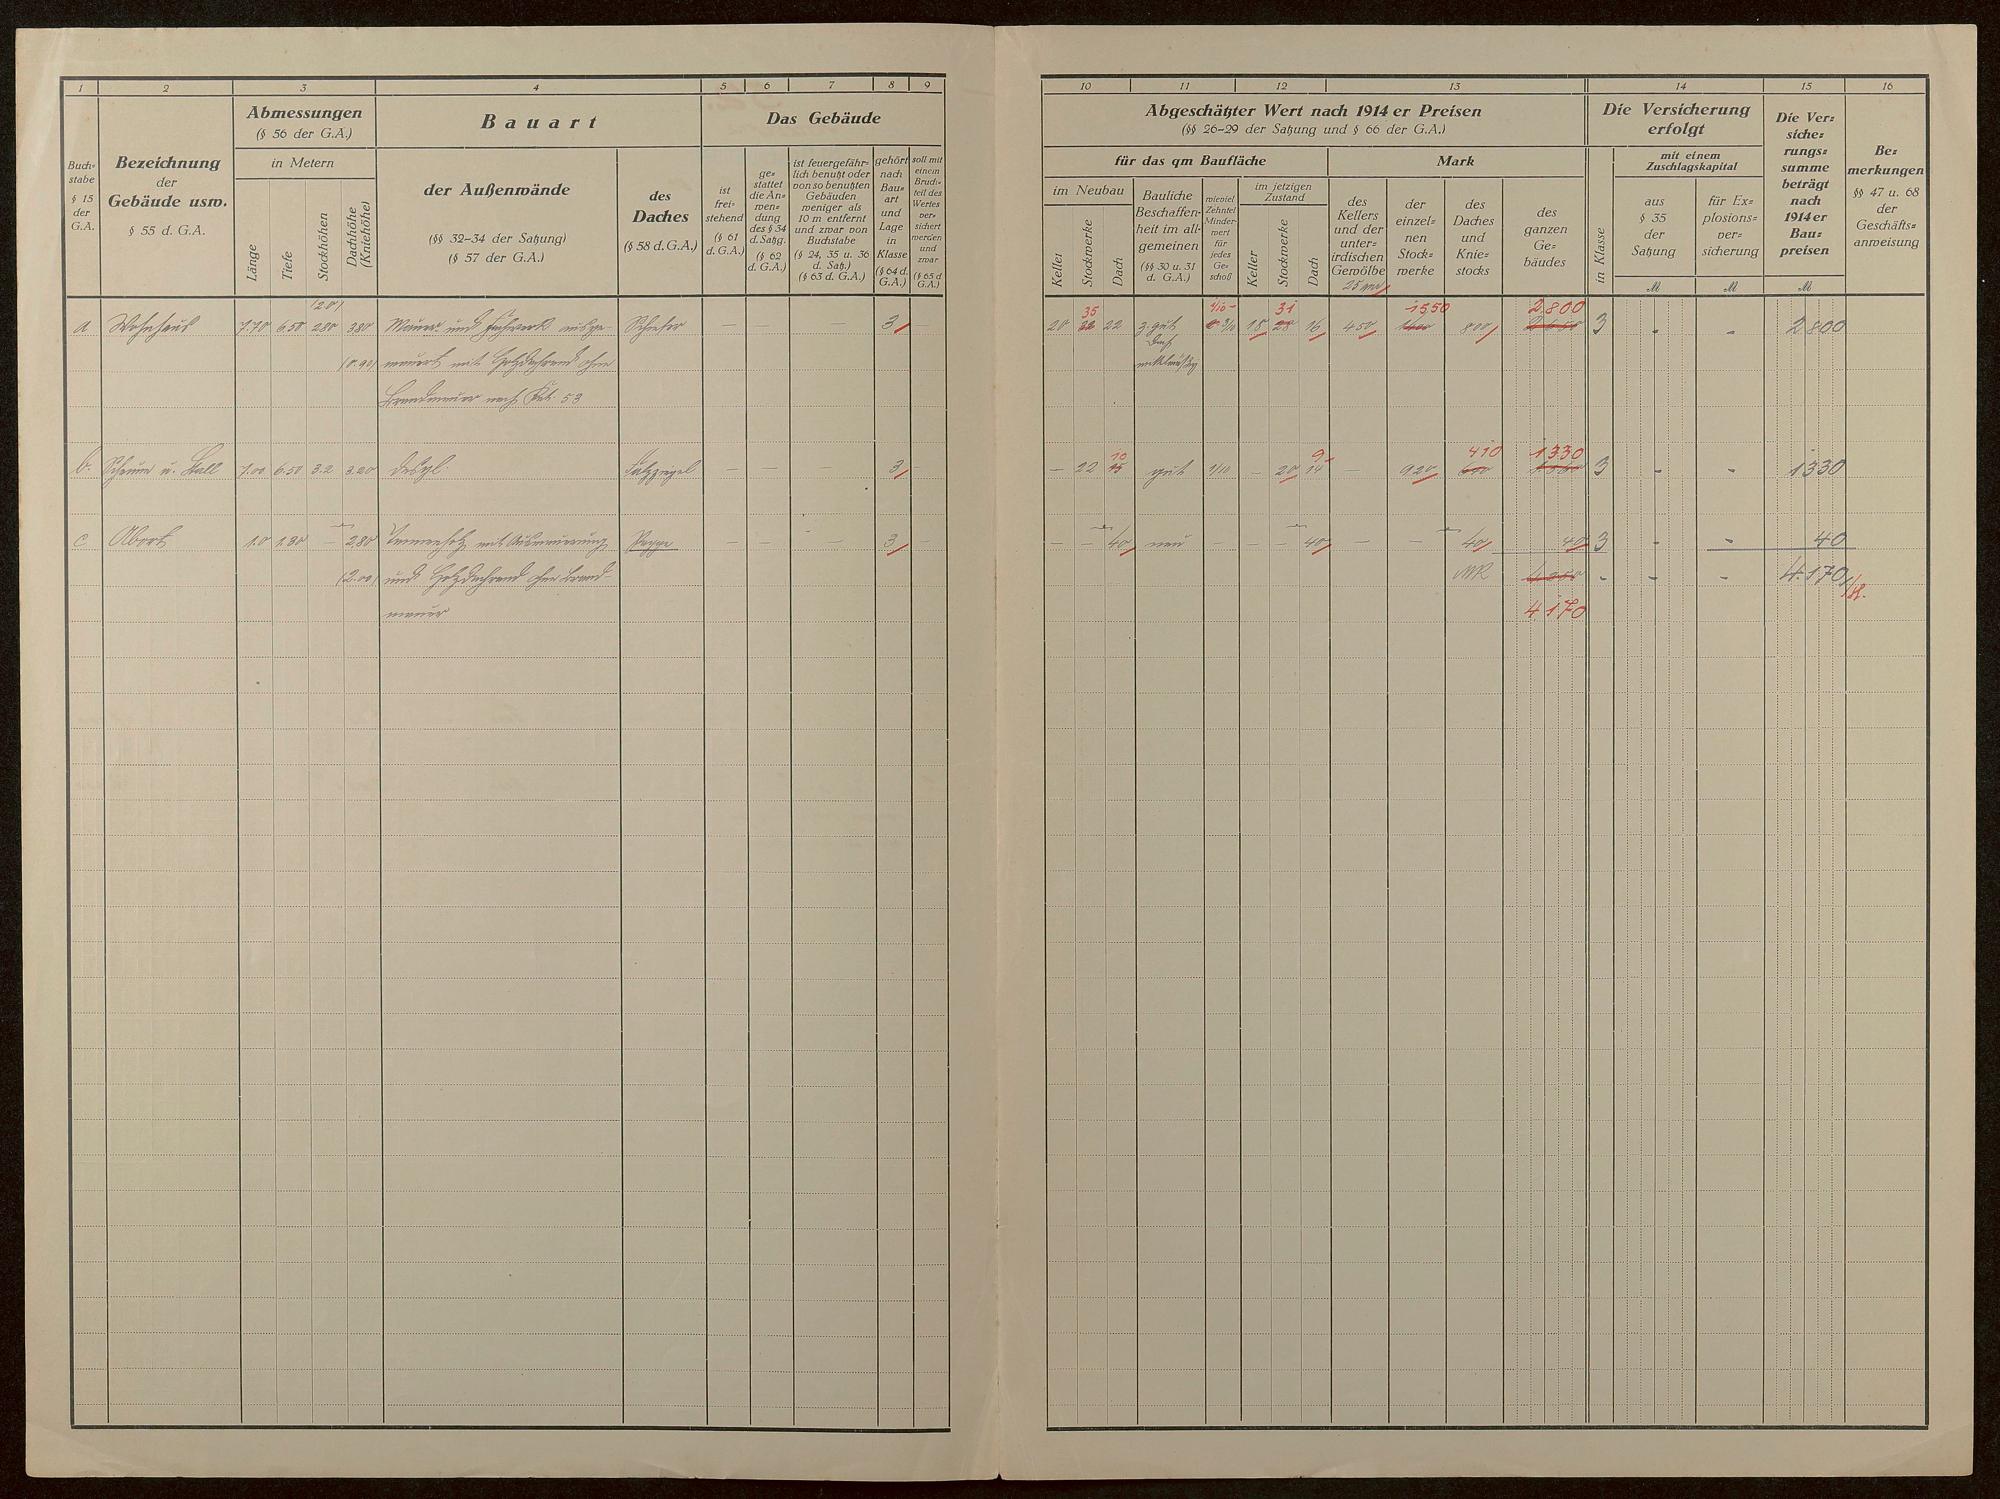 1 2 3 4 5 6 7 8 9
Buch=
stabe
§ 15
der
G.A.
Bezeichnung
der
Gebäude usw.
§ 55 d. G.A.
Abmessungen
(§ 56 der G.A.)
in Metern
Länge
Tiefe
Stockhöhen
Dachhöhe
(Kniehöhe)
Bauart
der Außenwände
(§§ 32-34 der Satzung)
(§ 57 der G.A.)
des
Daches
(§ 58 d. G.A.)
Das Gebäude
ist
frei=
stehend
(§ 61
d. G.A.)
ge=
stattet
die An=
wen=
dung
des § 34
d. Satzg.
(§ 62
d. G.A.)
ist feuergefähr=
lich benutzt oder
von so benutzten
Gebäuden
weniger als
10 m entfernt
und zwar von
Buchstabe
(§ 24, 35 u. 36
d. Satz.)
(§ 63 d. G.A.)
gehört
nach
Bau=
art
und
Lage
in
Klasse
(§ 64 d.
G.A.)
soll mit
einem
Bruch=
teil des
Wertes
ver=
sichert
werden
und
zwar
(§ 65 d
G.A.)
(20)
a Wohnhaus 7.70 6.50 280 380 Mauer und Fachwerk ausge- Schiefer — — — 3 —
(0.90) mauert mit Holzdachrand ohne
Brandmauer nach Kat. 53
b. Scheune u. Stall 7.00 6.50 3.2 3.20 desgl. Falzziegel — — — 3 —
c Abort 1.0 1.30 — 2.80 Tannenholz mit Ausmauerung Pappe — — — 3 —
(2.00) und Holzdachrand ohne Brand-
mauer
10 11 12 13 14 15 16
Abgeschätzter Wert nach 1914 er Preisen
(§§ 26-29 der Satzung und § 66 der G.A.)
für das qm Baufläche
Mark
im Neubau
Keller
Stockwerke
Dach
Bauliche
Beschaffen=
heit im all=
gemeinen
(§§ 30 u. 31
d. G.A.)
wieviel
Zehntel
Minder=
wert
für
jedes
Ge=
schoß
im jetzigen
Zustand
Keller
Stockwerke
Dach
des
Kellers
und der
unter=
irdischen
Gewölbe
der
einzel=
nen
Stock=
werke
des
Daches
und
Knie=
stocks
des
ganzen
Ge=
bäudes
Die Versicherung
erfolgt
in Klasse
mit einem
Zuschlagskapital
aus
§ 35
der
Satzung
für Ex=
plosions=
ver=
sicherung
Die Ver=
siche=
rungs=
summe
beträgt
nach
1914 er
Bau=
preisen
Be=
merkungen
§§ 47 u. 68
der
Geschäfts=
anweisung
M M M
25 m
35 1/10 31 1550 2.800
20 22 z. gut 3/10 18 28 16 450 800 3 - - 2 800
Dach
10 9 410 1330
— 22 15 gut 1/10 — 20 14 — 920 3 - - 1330
— — 40 neu — — 40 — — 40 40 3 - - 40
MK - - - 4.170
4170